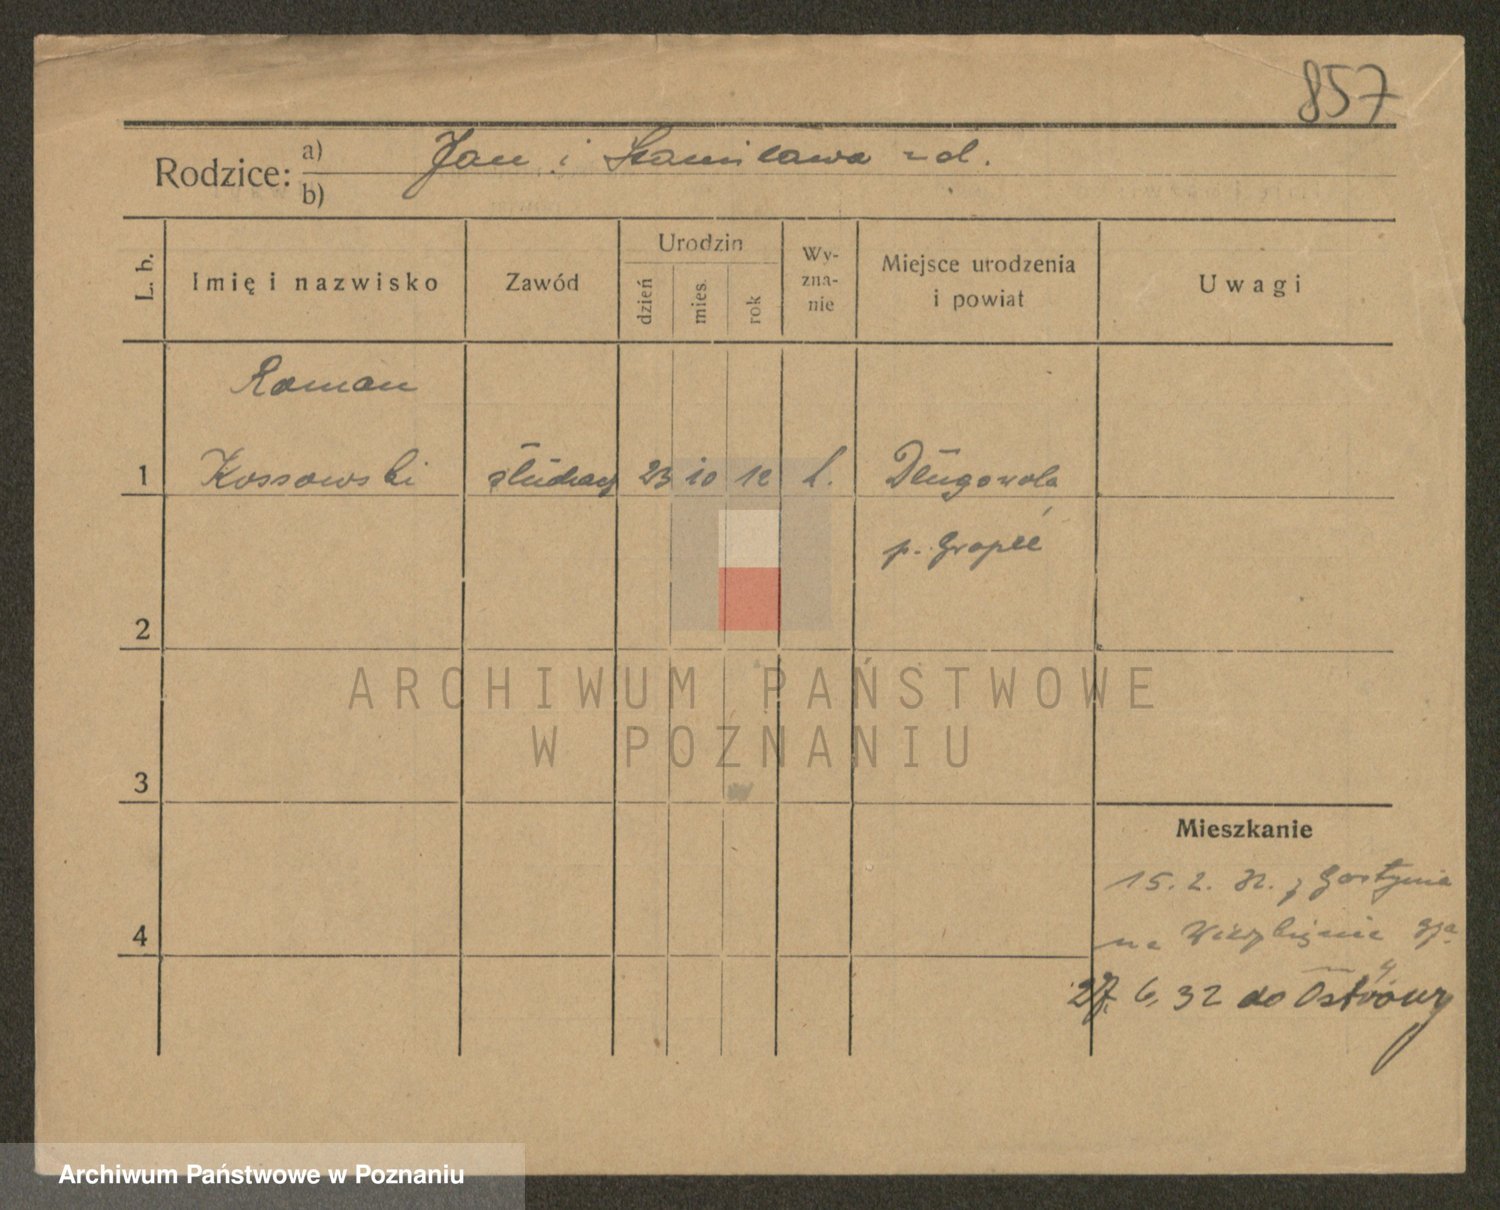 857
Rodzice: a) Jan i Stanisława
b)
L. b. Imię i nazwisko Zawód Urodzin Wyznanie Miejsce urodzenia i powiat Uwagi
dzień mies. rok
Roman
1 Kossowski 23 10 12 Długowola
p.
2
3
4
Mieszkanie
15. 2. 32. z Gostynia
na
27. 6. 32 do
ARCHIWUM PAŃSTWOWE
W POZNANIU
Archiwum Państwowe w Poznaniu